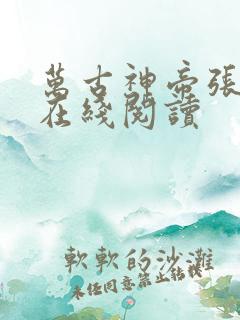 萬古神帝張
在綫閱讀
軟軟的沙灘
未经同意禁止转载